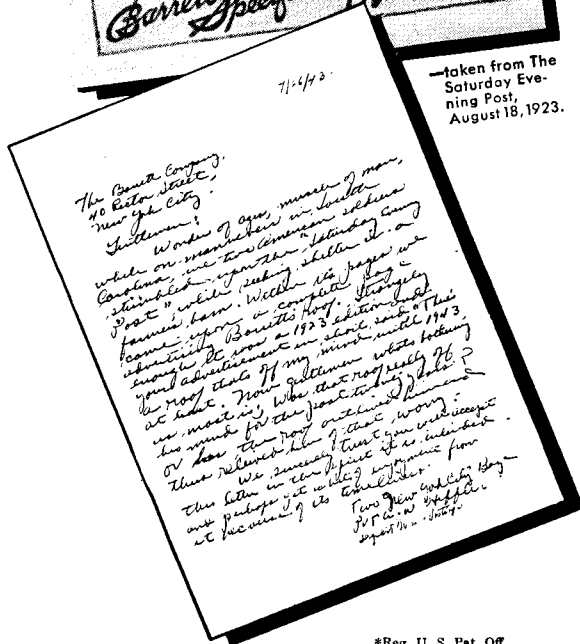 Barrett
Speci
—taken from The
Saturday Eve-
ning Post,
August 18, 1923.
7/26/43.
The Barrett Company,
40 Rector Street,
New York City.
Gentlemen:
Wonder of ages, muscle of man,
while on maneuvers in South
Carolina, we two American soldiers
stumbled upon the "Saturday Evening
Post" while seeking shelter in a
farmer's barn. Within its pages we
came upon a complete page
advertising Barrett's Roof. Strangely
enough it was a 1923 edition and
your advertisement in short, said "This
a roof thats off my mind until 1943
at least." Now gentlemen whats bothering
us most is, Was that roof really off
his mind for the past twenty years?
or has the roof outlived him and
thus relieved him of that worry?
We sincerely trust you will accept
this letter in the spirit it is intended
and perhaps get a bit of enjoyment from
it because of its timeliness.
Two New York City Boys
Pvt
*Reg. U. S. Pat. Off.